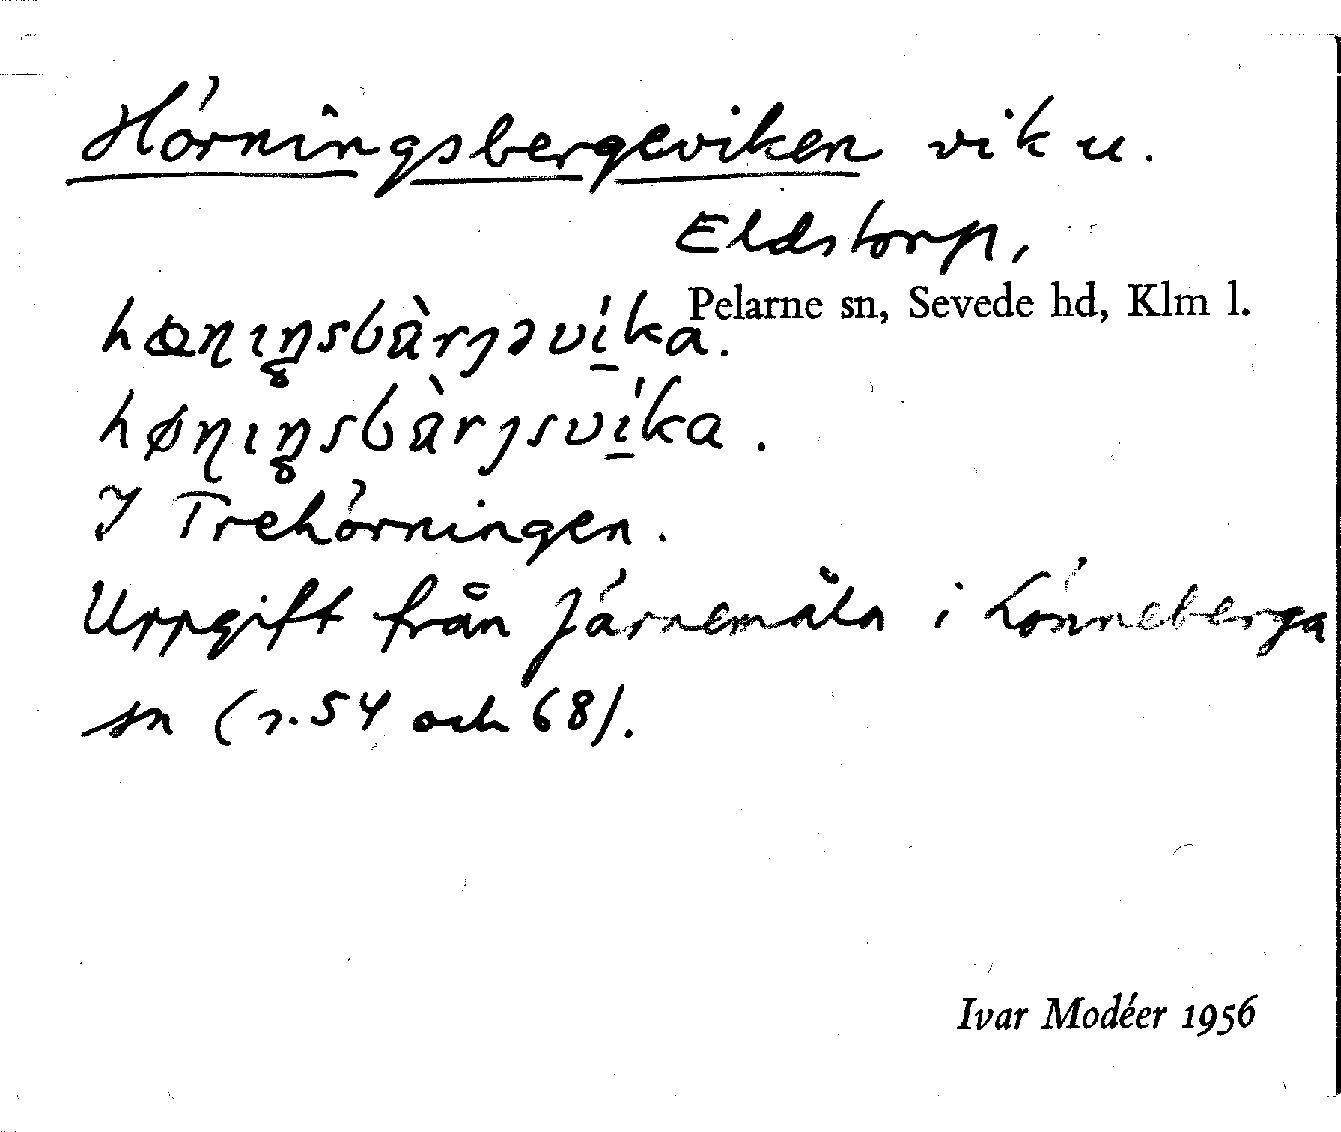 Hörningsbergeviken vik u.
Eldstorp,
Pelarne sn, Sevede hd, Klm l.
hœɳıŋsbàrȷəvíka.
høɳıŋsbàrȷsvíka.
I Trehörningen.
Uppgift från Järnemåla i Lönneberga
sn (s. 54 och 68).
Ivar Modéer 1956